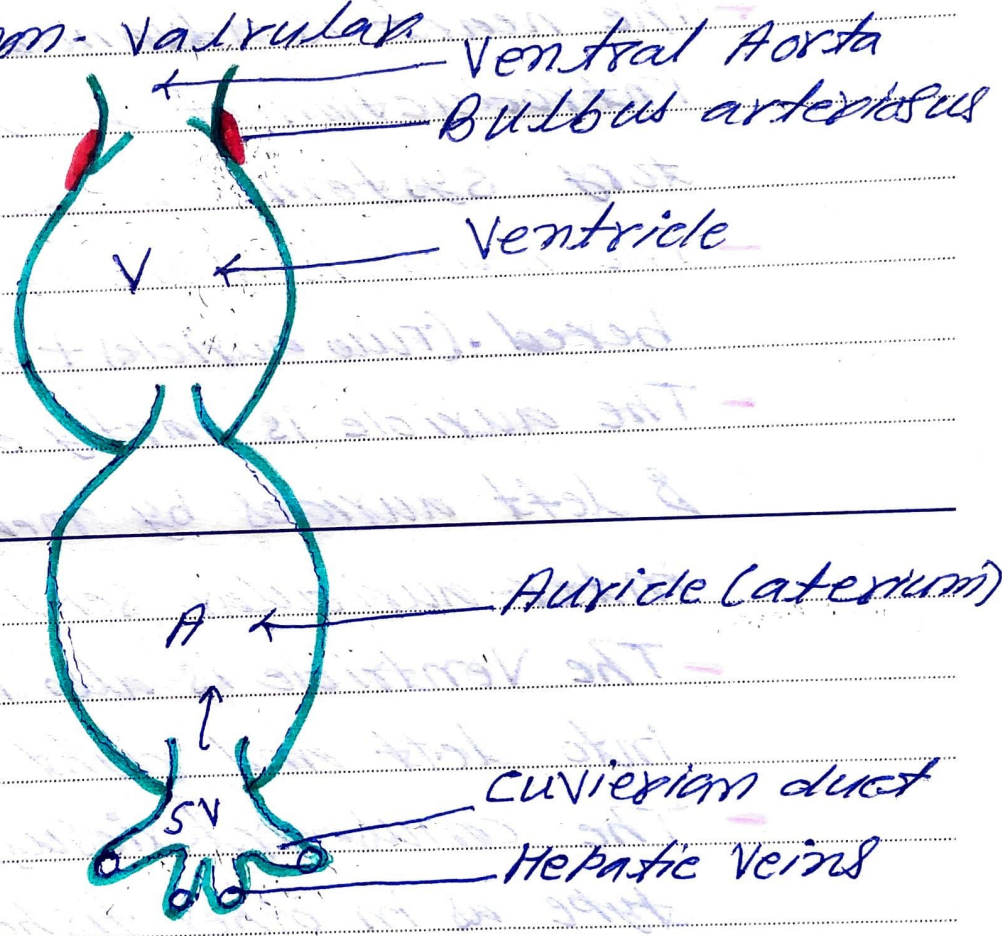 on- Valvular
Ventral Aorta
Bulbus arteriosus
V
Ventricle
A
Auricle (aterium)
SV
Cuvierian duct
Hepatic Veins